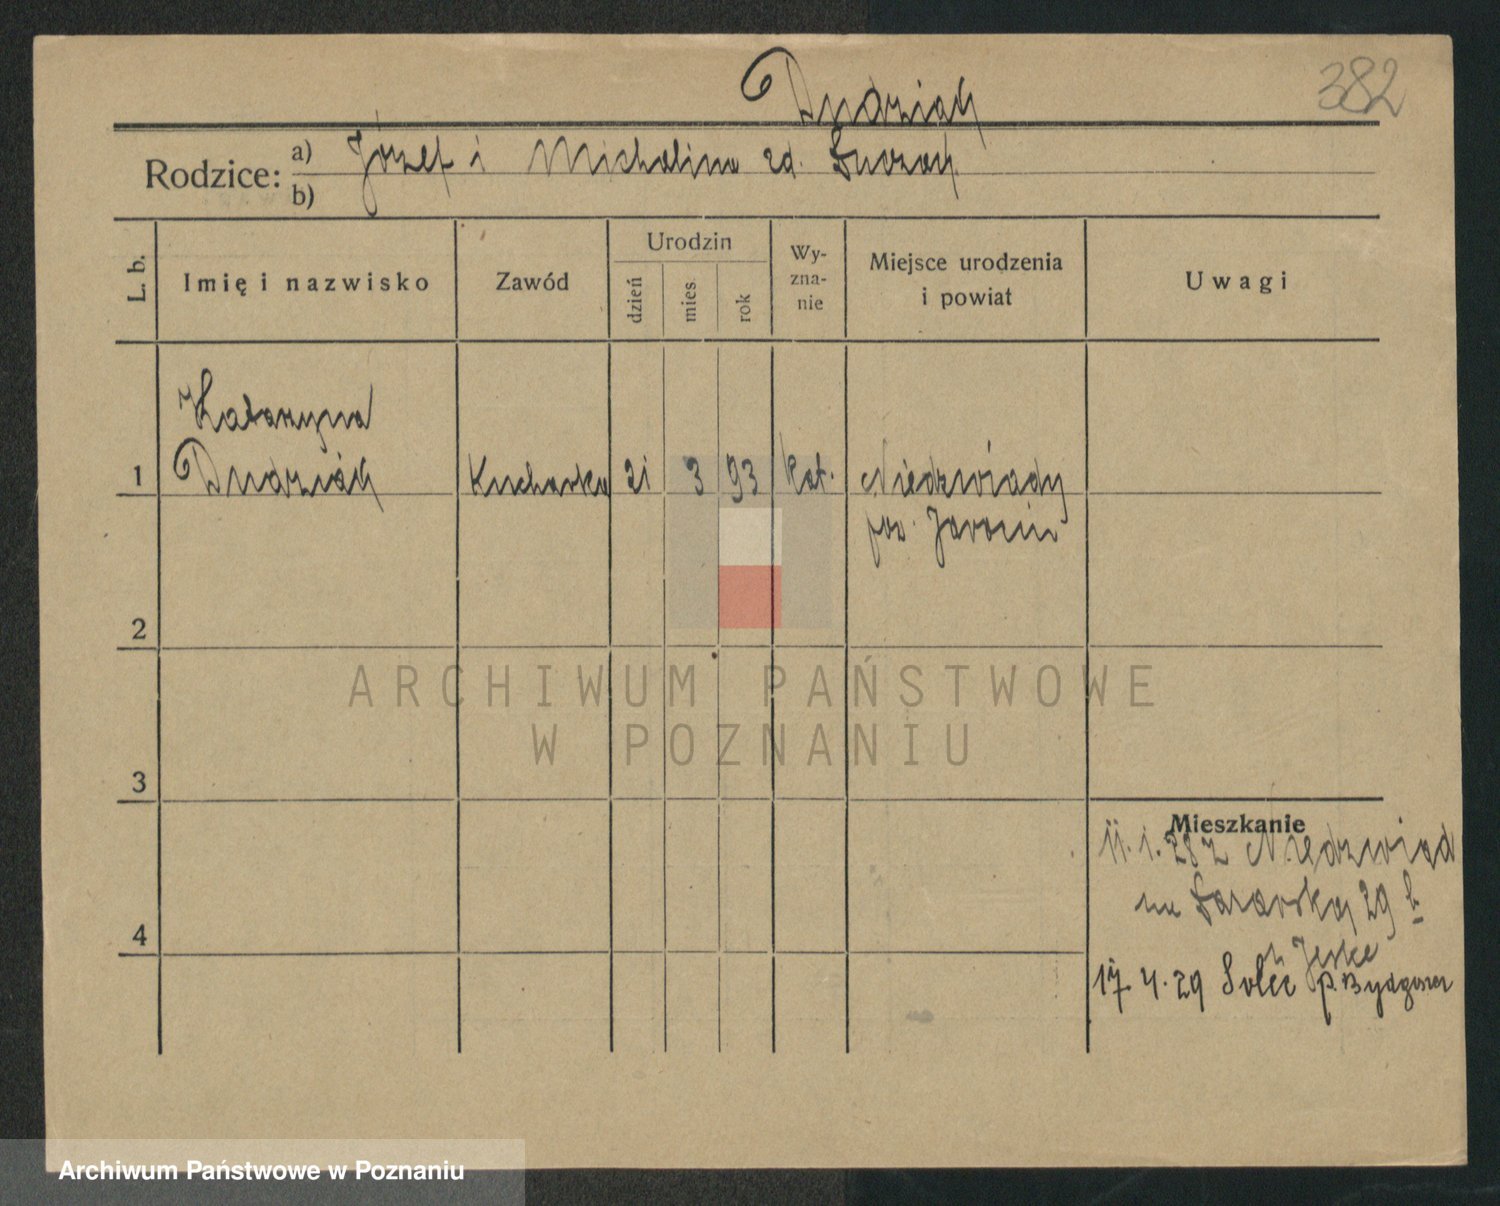 382
Dudziak
Rodzice: a) Józef i Michalina zd.
b)
L. b.
Imię i nazwisko
Zawód
Urodzin
dzień
mies.
rok
Wy-
zna-
nie
Miejsce urodzenia
i powiat
Uwagi
Katarzyna
1 Dudziak Kucharka 21 3 93 kat. Niedzwiady
pow. Jarocin
2
ARCHIWUM PAŃSTWOWE
W POZNANIU
3
Mieszkanie
11.1.28 z Niedzwiad
29 b
4
u Jeske
17.4.29 Solec p. Bydgoszcz
Archiwum Państwowe w Poznaniu